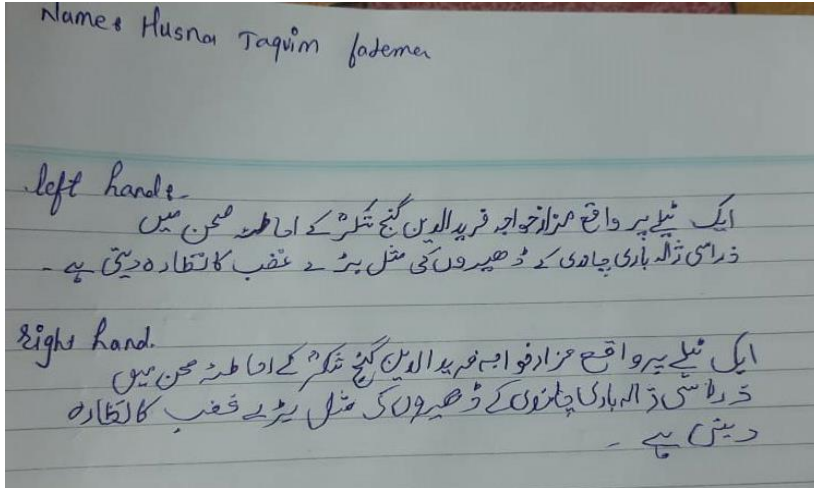 Name: Husna Taqvim fadema
left hand:
ایک ٹیلے پر واقع مزار خواجہ فرید الدین گنج شکرؒ کے احاطہ صحن میں
ذراسی ژالہ باری چاندی کے ڈھیروں کی مثل بڑے غضب کا نظارہ دیتی ہے -
right hand.
ایک ٹیلے پر واقع مزار خواجہ فرید الدین گنج شکرؒ کے احاطہ صحن میں
ذراسی ژالہ باری چاندی کے ڈھیروں کی مثل بڑے غضب کا نظارہ
دیتی ہے -